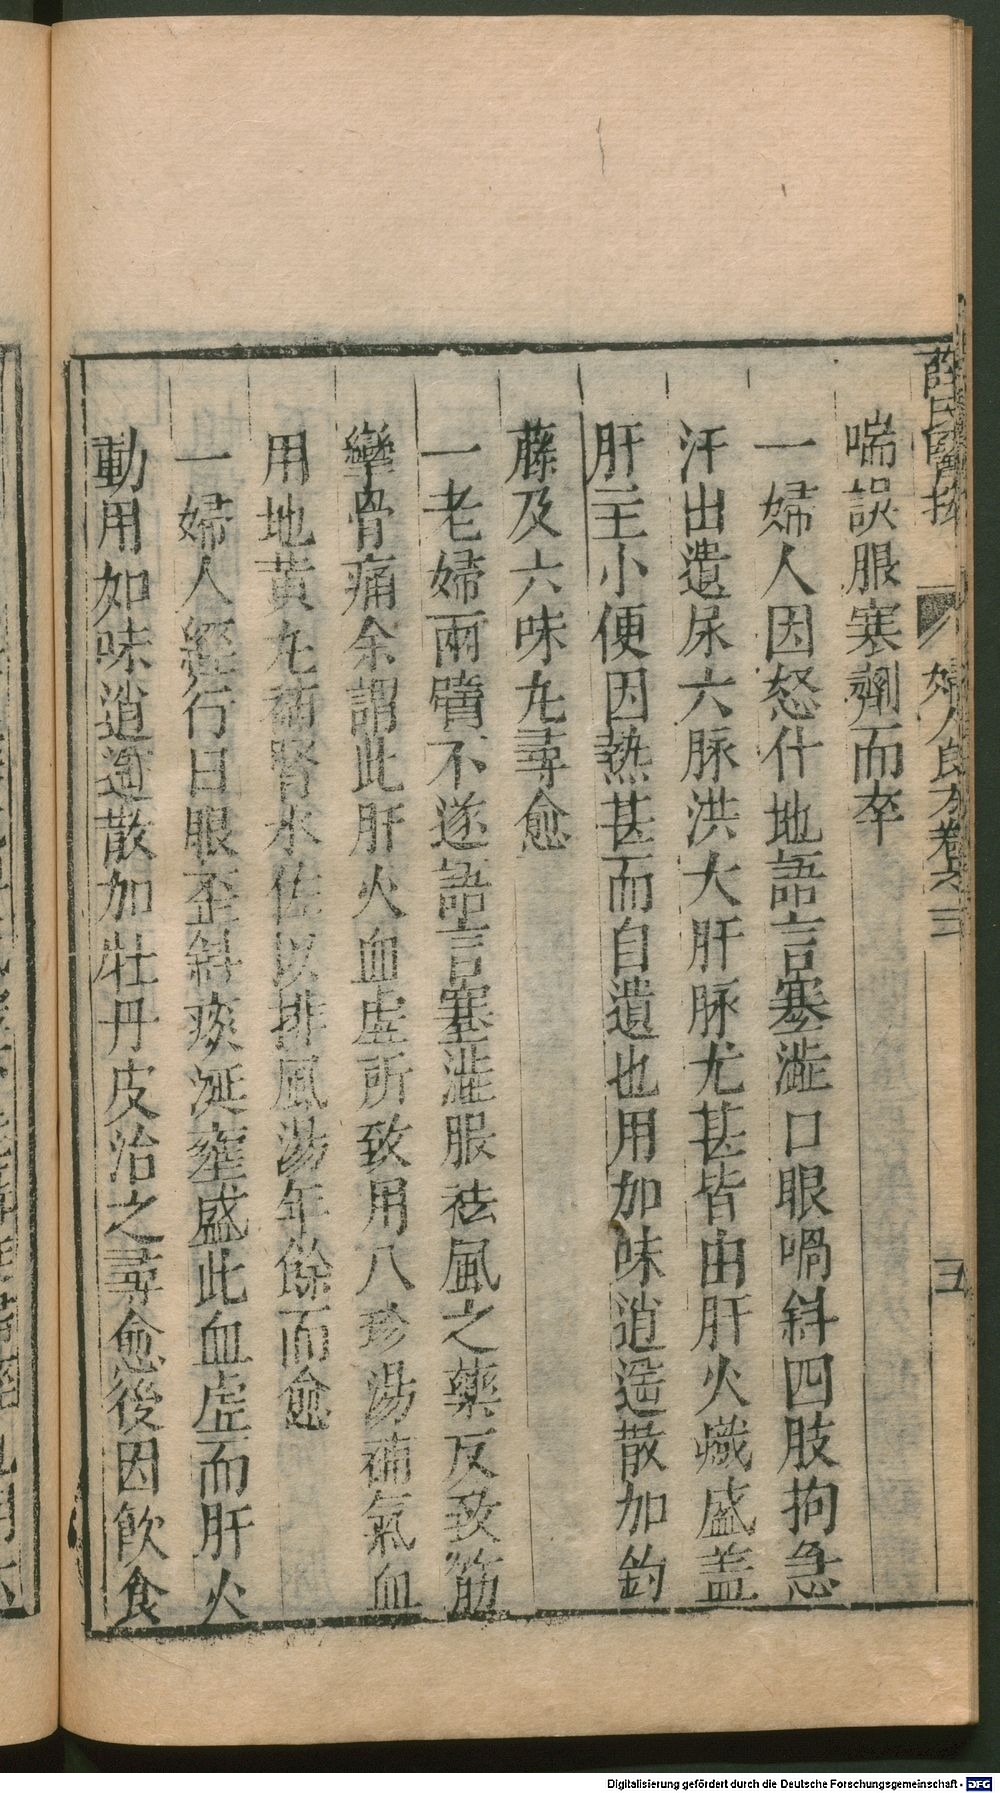 薛氏醫按 婦人良方卷之三 五
喘誤服塞劑而卒
一婦人因怒仆地語言蹇澁口眼喎斜四肢拘急
汗出遺尿六脉洪大肝脉尤甚皆由肝火熾盛盖
肝主小便因熱甚而自遺也用加味逍遥散加鈎
藤及六味丸尋愈
一老婦兩臂不遂語言蹇澁服祛風之藥反致筋
攣骨痛余謂此肝火血虛所致用八珍湯補氣血
用地黄丸補腎水佐以排風湯年餘而愈
一婦人經行日眼歪斜痰涎壅盛此血虛而肝火
動用如味逍遥散加牡丹皮治之尋愈後因飲食
Digitalisierung gefördert durch die Deutsche Forschungsgemeinschaft - DFG